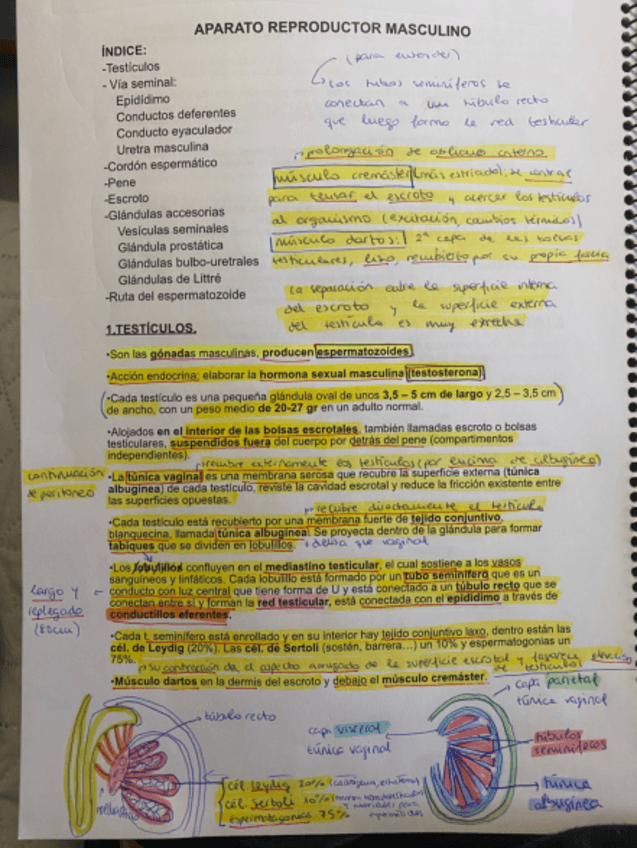 APARATO REPRODUCTOR MASCULINO
ÍNDICE:
-Testículos
- Vía seminal:
Epidídimo
Conductos deferentes
Conducto eyaculador
Uretra masculina
-Cordón espermático
-Pene
-Escroto
-Glándulas accesorias
Vesículas seminales
Glándula prostática
Glándulas bulbo-uretrales
Glándulas de Littré
-Ruta del espermatozoide
(para entender)
los tubos seminíferos se
conectan a un túbulo recto
que luego forma la red testicular
prolongación de oblicuo interno
músculo cremáster (más estriado): se contrae
para tensar el escroto y acercar los testículos
al organismo (excitación, cambios térmicos)
músculo dartos: 2ª capa de las bolsas
testiculares, liso, recubierto por su propia fascia
la separación entre la superficie interna
del escroto y la superficie externa
del testículo es muy estrecha
1.TESTÍCULOS.
•Son las gónadas masculinas, producen espermatozoides.
•Acción endocrina: elaborar la hormona sexual masculina (testosterona)
•Cada testículo es una pequeña glándula oval de unos 3,5 – 5 cm de largo y 2,5 – 3,5 cm
de ancho, con un peso medio de 20-27 gr en un adulto normal.
•Alojados en el interior de las bolsas escrotales, también llamadas escroto o bolsas
testiculares, suspendidos fuera del cuerpo por detrás del pene (compartimentos
independientes).
recubre externamente los testículos (por encima de albugínea)
continuación
de peritoneo
•La túnica vaginal es una membrana serosa que recubre la superficie externa (túnica
albugínea) de cada testículo, reviste la cavidad escrotal y reduce la fricción existente entre
las superficies opuestas.
recubre directamente el testículo
•Cada testículo está recubierto por una membrana fuerte de tejido conjuntivo,
blanquecina, llamada túnica albugínea. Se proyecta dentro de la glándula para formar
tabiques que se dividen en lobulillos.
que vaginal
•Los lobulillos confluyen en el mediastino testicular, el cual sostiene a los vasos
sanguíneos y linfáticos. Cada lobulillo está formado por un tubo seminífero que es un
conducto con luz central que tiene forma de U y está conectado a un túbulo recto que se
conectan entre sí y forman la red testicular, está conectada con el epidídimo a través de
conductillos eferentes.
largo y
replegado
(80cm)
•Cada t. seminífero está enrollado y en su interior hay tejido conjuntivo laxo, dentro están las
cél. de Leydig (20%). Las cél. de Sertoli (sostén, barrera...) un 10% y espermatogonias un
75%.
su contracción da el aspecto arrugado de la superficie escrotal y favorece elevación
de testículos
•Músculo dartos en la dermis del escroto y debajo el músculo cremáster.
capa parietal
túnica vaginal
túbulo recto
capa visceral
túnica vaginal
túbulos
seminíferos
cél. Leydig 20%
cél. Sertoli 10%
espermatogonias 75%
túnica
albugínea